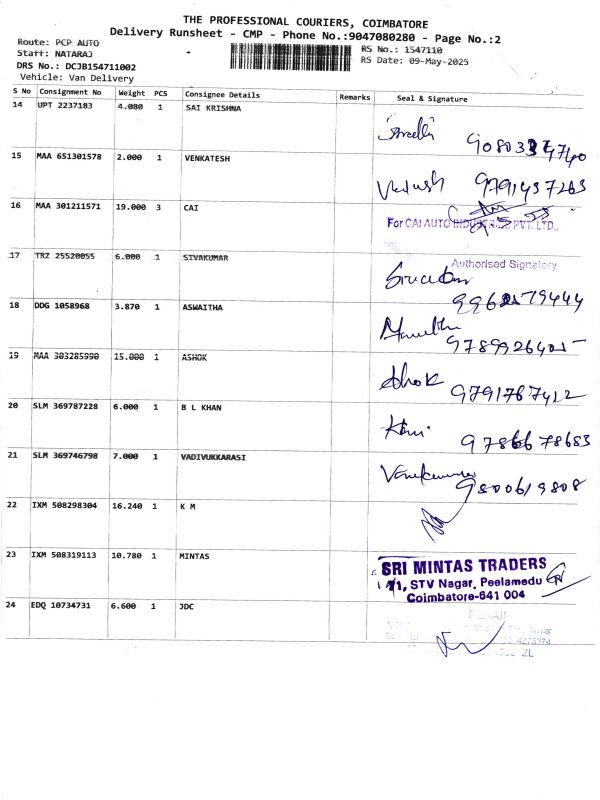 THE PROFESSIONAL COURIERS, COIMBATORE
Delivery Runsheet - CMP - Phone No.:9047080280 - Page No.:2
Route: PCP AUTO
RS No.: 1547110
Staff: NATARAJ
RS Date: 09-May-2025
DRS No.: DCJB154711002
Vehicle: Van Delivery
S No Consignment No Weight PCS Consignee Details Remarks Seal & Signature
14 UPT 2237183 4.080 1 SAI KRISHNA
15 MAA 651301578 2.000 1 VENKATESH
9791437263
16 MAA 301211571 19.000 3 CAI
For CAI AUTO INDUSTRIES PVT. LTD.,
Authorised Signatory
17 TRZ 25520055 6.000 1 SIVAKUMAR
18 DDG 1058968 3.870 1 ASWAITHA
19 MAA 303285990 15.000 1 ASHOK
Ashok 9791787412
20 SLM 369787228 6.000 1 B L KHAN
21 SLM 369746798 7.000 1 VADIVUKKARASI
9500619808
22 IXM 508298304 16.240 1 K M
23 IXM 508319113 10.780 1 MINTAS
SRI MINTAS TRADERS
STV Nagar, Peelamedu
Coimbatore-641 004
24 EDQ 10734731 6.600 1 JDC